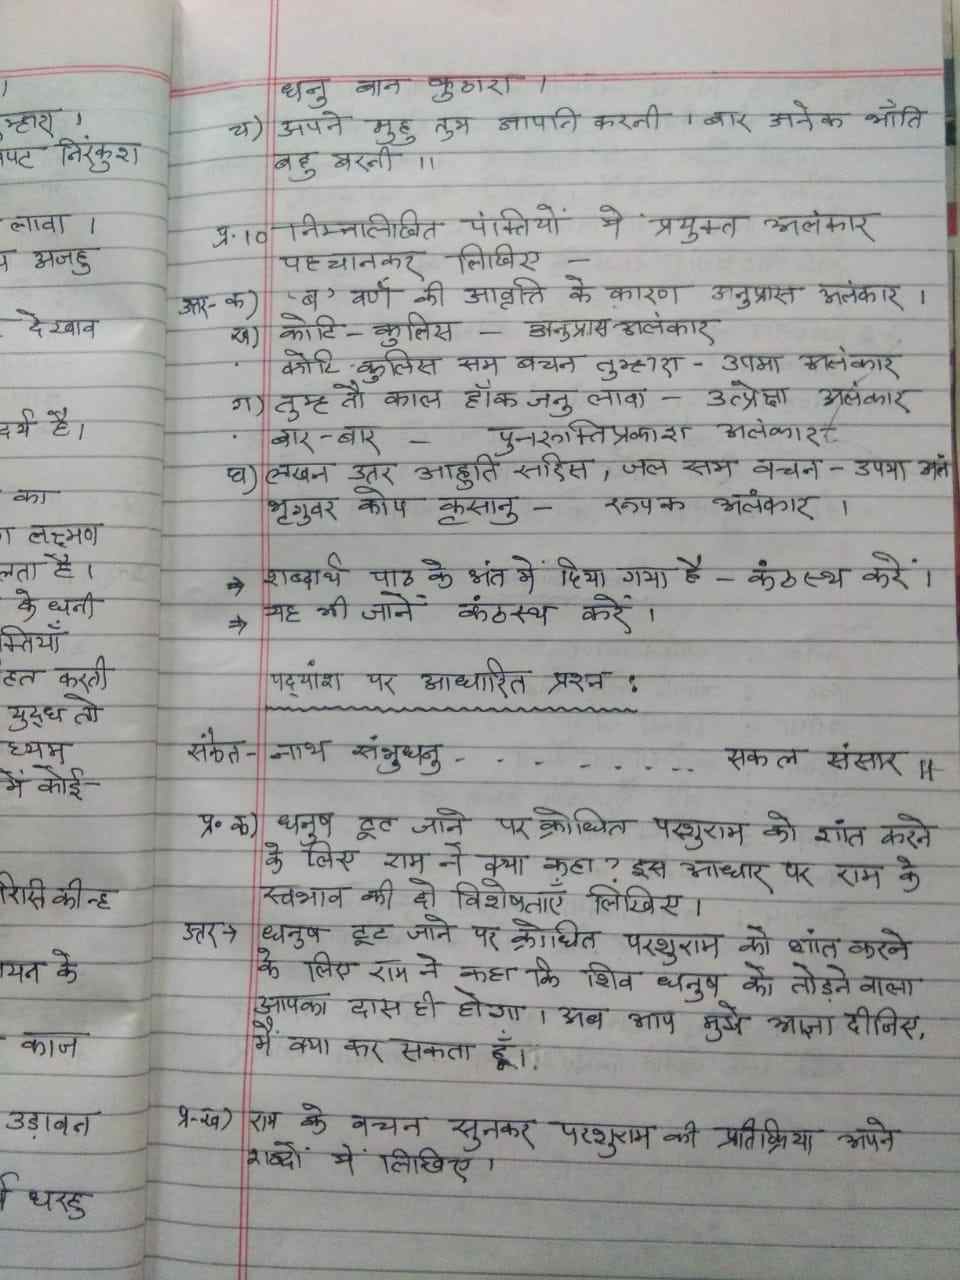 ।
म्हारा ।
निरंकुश
लावा ।
अजहु
देखाव
है।
का
लक्ष्मण
है।
के धनी
करती
युद्ध तो
में कोई
के
काज
उड़ावन
धरहु
धनु बान कुठारा ।
च) अपने मुहु तुम आपनि करनी । बार अनेक भाँति
बहु बरनी ।।
प्र.10 निम्नलिखित पंक्तियों में प्रयुक्त अलंकार
पहचानकर लिखिए –
उत्तर- क) 'ब' वर्ण की आवृत्ति के कारण अनुप्रास अलंकार ।
ख) कोटि - कुलिस – अनुप्रास अलंकार
कोटि कुलिस सम बचन तुम्हारा - उपमा अलंकार
ग) तुम्ह तौ काल हाँक जनु लावा – उत्प्रेक्षा अलंकार
बार-बार – पुनरुक्तिप्रकाश अलंकार
घ) लखन उतर आहुति सरिस, जल सम वचन – उपमा अलं
भृगुवर कोप कृसानु – रूपक अलंकार ।
⇒ शब्दार्थ पाठ के अंत में दिया गया है – कंठस्थ करें ।
⇒ यह भी जानें कंठस्थ करें ।
पद्यांश पर आधारित प्रश्न :
संकेत- नाथ संभुधनु - - - - - - - - सकल संसार ॥
प्र॰ क) धनुष टूट जाने पर क्रोधित परशुराम को शांत करने
के लिए राम ने क्या कहा ? इस आधार पर राम के
स्वभाव की दो विशेषताएँ लिखिए ।
उत्तर → धनुष टूट जाने पर क्रोधित परशुराम को शांत करने
के लिए राम ने कहा कि शिव धनुष को तोड़ने वाला
आपका दास ही होगा । अब आप मुझे आज्ञा दीजिए,
मैं क्या कर सकता हूँ।
प्र-ख) राम के वचन सुनकर परशुराम की प्रतिक्रिया अपने
शब्दों में लिखिए ।